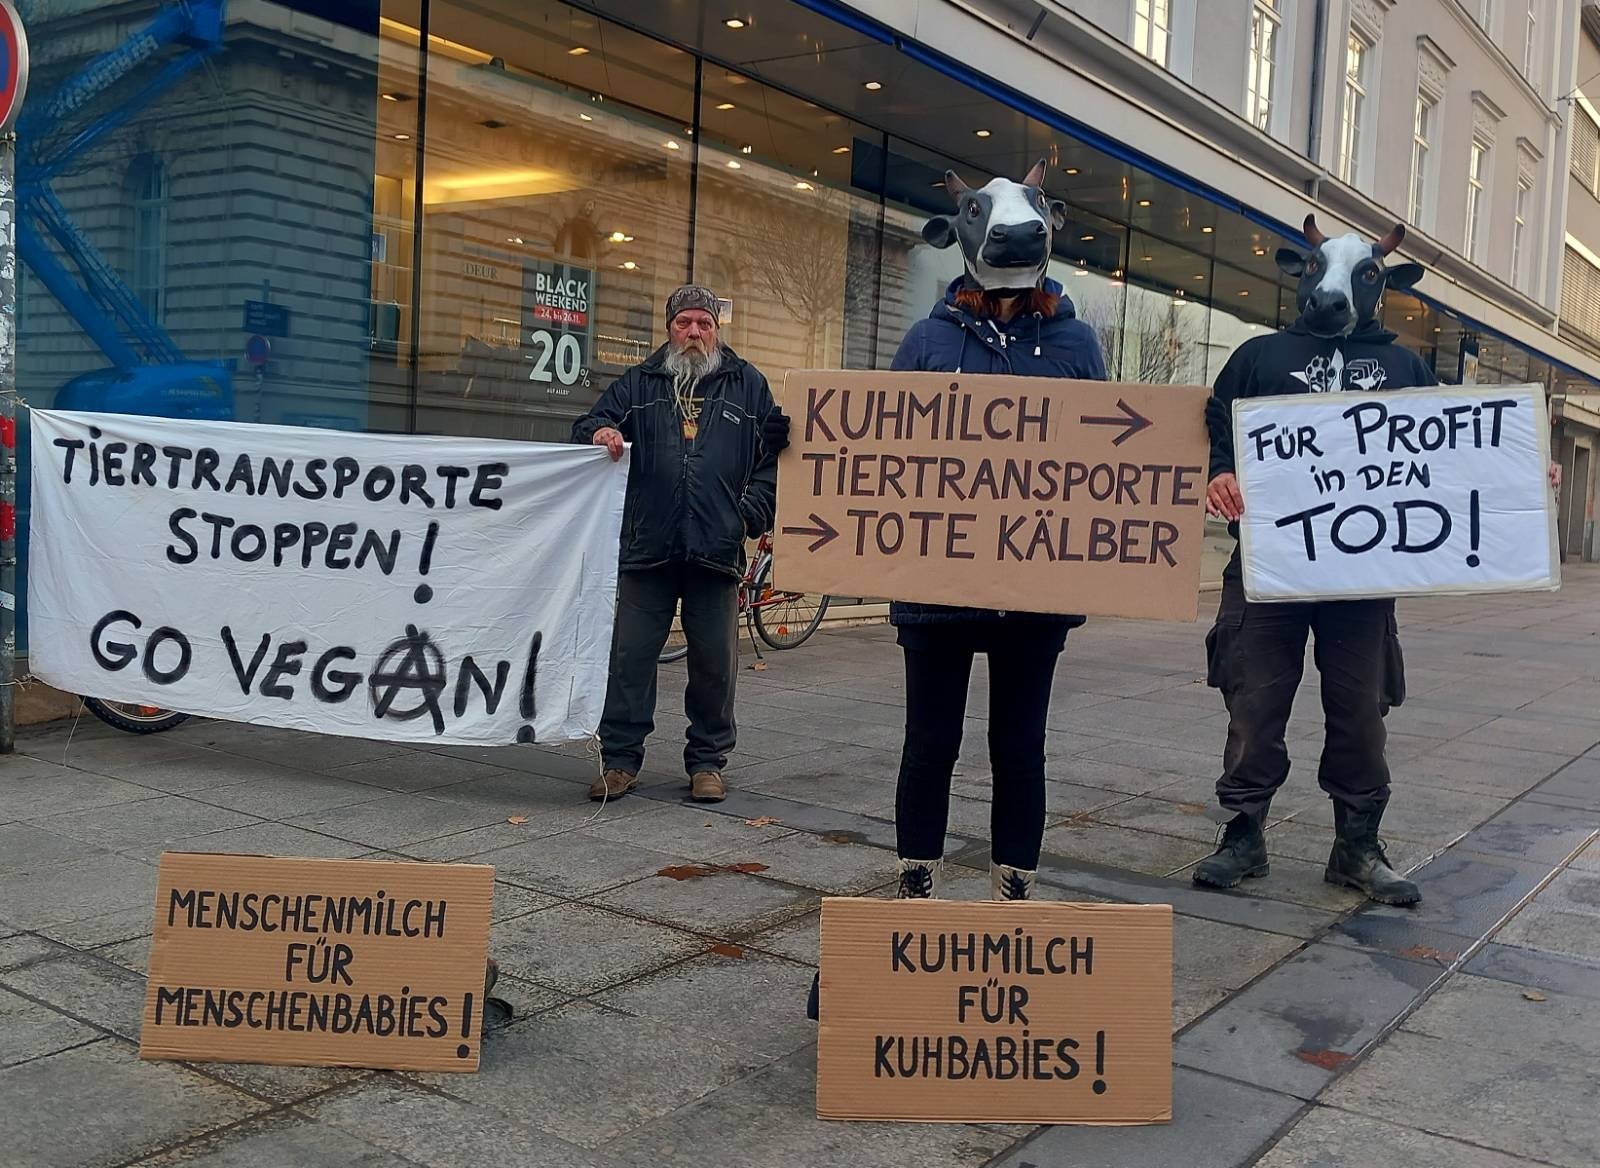 BLACK
WEEKEND
24. bis 26.11.
-20%
AUF ALLES*
TiERTRANSPORTE
STOPPEN!
GO VEGAN!
KUHMiLCH →
TiERTRANSPORTE
→ TOTE KÄLBER
FÜR PROFiT
in DEN
TOD!
MENSCHENMiLCH
FÜR
MENSCHENBABiES!
KUHMiLCH
FÜR
KUHBABiES!